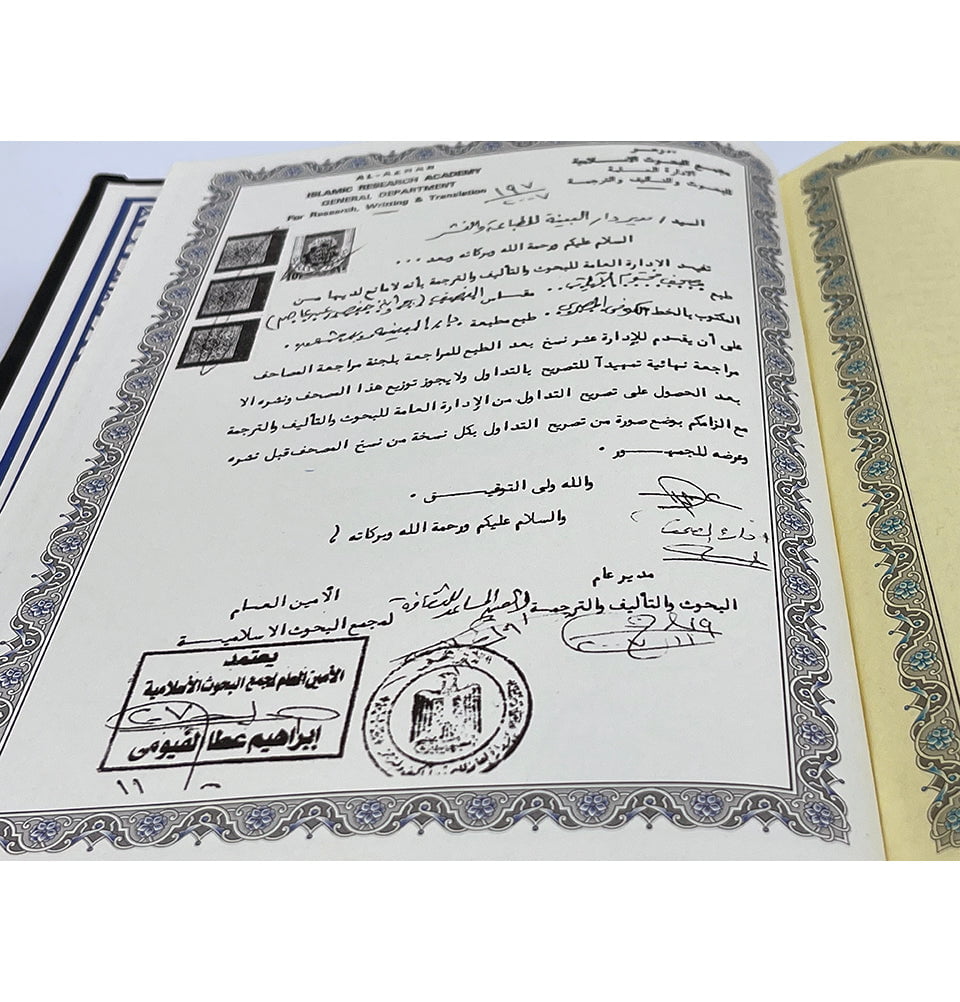 AL-AZHAR
ISLAMIC RESEARCH ACADEMY
GENERAL DEPARTMENT
For Research, Writing & Translation
الأزهر
مجمع البحوث الاسلامية
الادارة العامة
للبحوث والتأليف والترجمة
١٩٧
السيد / مدير دار البينة للطباعة والنشر
السلام عليكم ورحمة الله وبركاته وبعد ...
تفيد الادارة العامة للبحوث والتأليف والترجمة بأنه لا مانع لديها من
طبع مصحف
المكتوب بالخط الكوفى المصرى . مقاس
على أن يقدم للإدارة عشر نسخ بعد الطبع للمراجعة بلجنة مراجعة المصاحف
مراجعة نهائية تمهيدآ للتصريح بالتداول ولا يجوز توزيع هذا المصحف ونشره الا
بعد الحصول على تصريح التداول من الإدارة العامة للبحوث والتأليف والترجمة
مع الزامكم بوضع صورة من تصريح التداول بكل نسخة من نسخ المصحف قبل نشره
وعرضه للجمهور .
والله ولى التوفيق .
والسلام عليكم ورحمة الله وبركاته
مدير عام
البحوث والتأليف والترجمة
الأمين العام
لمجمع البحوث الاسلامية
يعتمد
الأمين العام لمجمع البحوث الأسلامية
إبراهيم عطا الفيومى